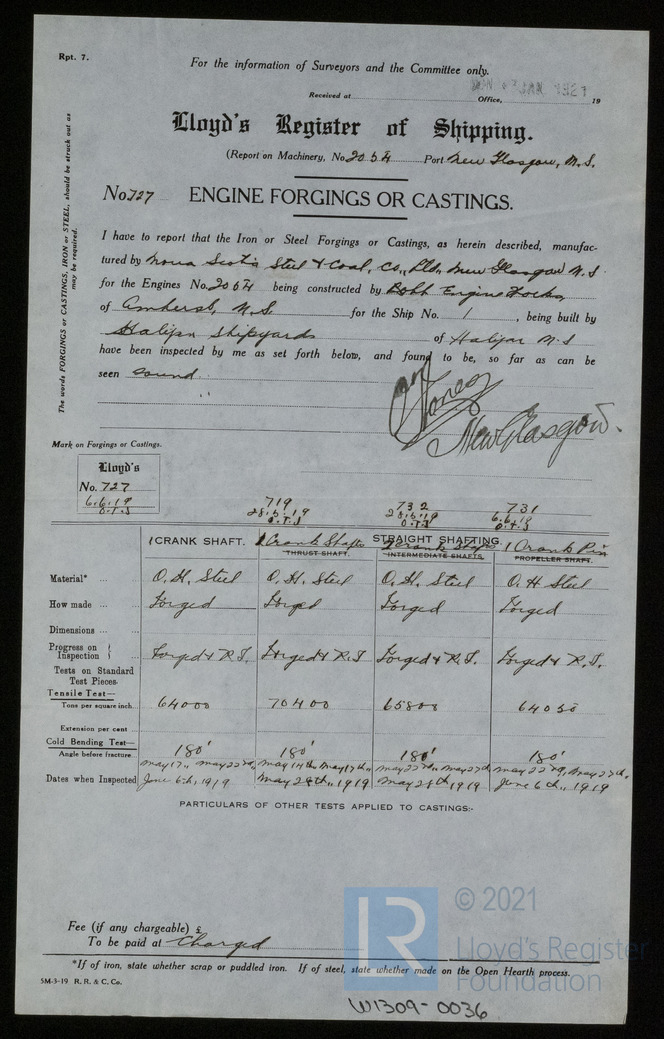 Rpt. 7.
For the information of Surveyors and the Committee only.
Received at Office, 19
Lloyd's Register of Shipping.
(Report on Machinery, No. 2054 Port New Glasgow, N.S.
No 727 ENGINE FORGINGS OR CASTINGS.
The words FORGINGS or CASTINGS, IRON or STEEL, should be struck out as may be required.
I have to report that the Iron or Steel Forgings or Castings, as herein described, manufac-
tured by Nova Scotia Steel & Coal, Co., Ltd, New Glasgow N.S.
for the Engines No. 2064 being constructed by Robb Engine Works,
of Amherst, N.S. for the Ship No. 1, being built by
Halifax Shipyards of Halifax N.S
have been inspected by me as set forth below, and found to be, so far as can be
seen sound.
Jones
New Glasgow.
Mark on Forgings or Castings.
Lloyd's
No. 727
6.6.19
O.T.J
719 732 731
28.5.19 28.5.19 6.6.19
O.T.J O.T.J O.T.J
STRAIGHT SHAFTING.
1 CRANK SHAFT. 2 Crank Shafts 2 Crank Shafts 1 Crank Pin
THRUST SHAFT. INTERMEDIATE SHAFTS. PROPELLER SHAFT.
Material* O.H. Steel O.H. Steel O.H. Steel O.H Steel
How made Forged Forged Forged Forged
Dimensions
Progress on Inspection Forged & R.T. Forged & R.T Forged & R.T. Forged & R.T.
Tests on Standard Test Pieces-
Tensile Test—
Tons per square inch. 64000 70400 65800 64050
Extension per cent
Cold Bending Test—
Angle before fracture 180' 180' 180' 180'
May 17", May 22nd, May 14th May 17th May 22nd, May 27th May 22nd, May 27th,
Dates when Inspected June 6th, 1919 May 28th, 1919 May 28th 1919 June 6th,, 1919
PARTICULARS OF OTHER TESTS APPLIED TO CASTINGS:-
Fee (if any chargeable) £
To be paid at Charged
*If of iron, state whether scrap or puddled iron. If of steel, state whether made on the Open Hearth process.
5M-3-19 R. R. & C. Co.
LR
© 2021
Lloyd's Register
Foundation
W1309-0036